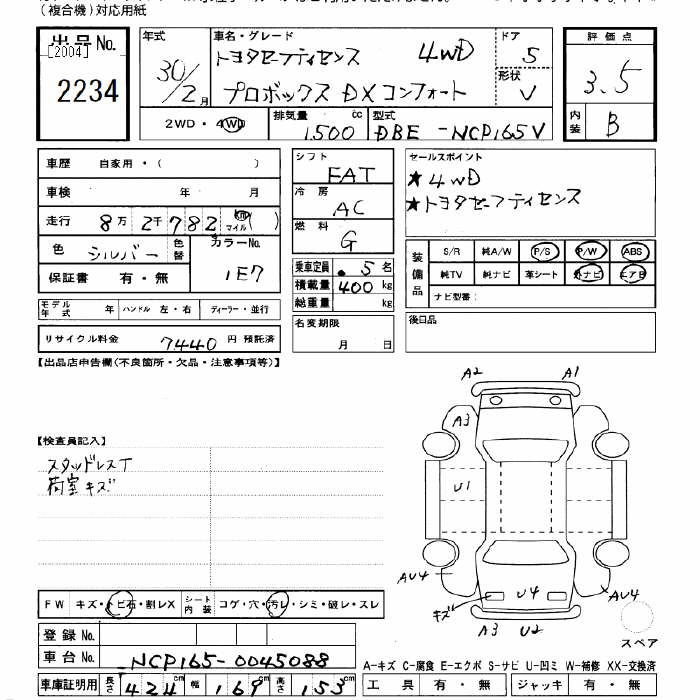 (複合機)対応用紙
出品No.
[2004]
2234
年式
30/2月
車名・グレード
トヨタセーフティセンス 4WD
プロボックス DXコンフォート
ドア
5
形状
V
評価点
3.5
内装
B
2WD・4WD
排気量
1500 cc
型式
DBE-NCP165V
車歴 自家用・( )
車検 年 月
走行 8万2千782 km マイル( )
色 シルバー 色替 カラーNo.
1E7
保証書 有・無
モデル年式 年 ハンドル 左・右 ディーラー・並行
リサイクル料金 7440円 預託済
シフト
FAT
冷房
AC
燃料
G
乗車定員 . 5 名
積載量 400 kg
総重量 kg
名変期限
月 日
セールスポイント
★4WD
★トヨタセーフティセンス
装備品
S/R 純A/W P/S P/W ABS
純TV 純ナビ 革シート 外ナビ エアB
ナビ型番:
後日品
【出品店申告欄(不良箇所・欠品・注意事項等)】
【検査員記入】
スタッドレスT
荷室キズ
A2 A1
A3
U1
AU4 U4 AU4
キズ
A3 U2
スペア
FW キズ・トビ石・割レX シート内装 コゲ・穴・汚レ・シミ・破レ・スレ
登録No.
車台No. NCP165-0045088
車庫証明用 長さ 424 cm 幅 169 cm 高さ 153 cm
A-キズ C-腐食 E-エクボ S-サビ U-凹ミ W-補修 XX-交換済
工具 有・無 ジャッキ 有・無